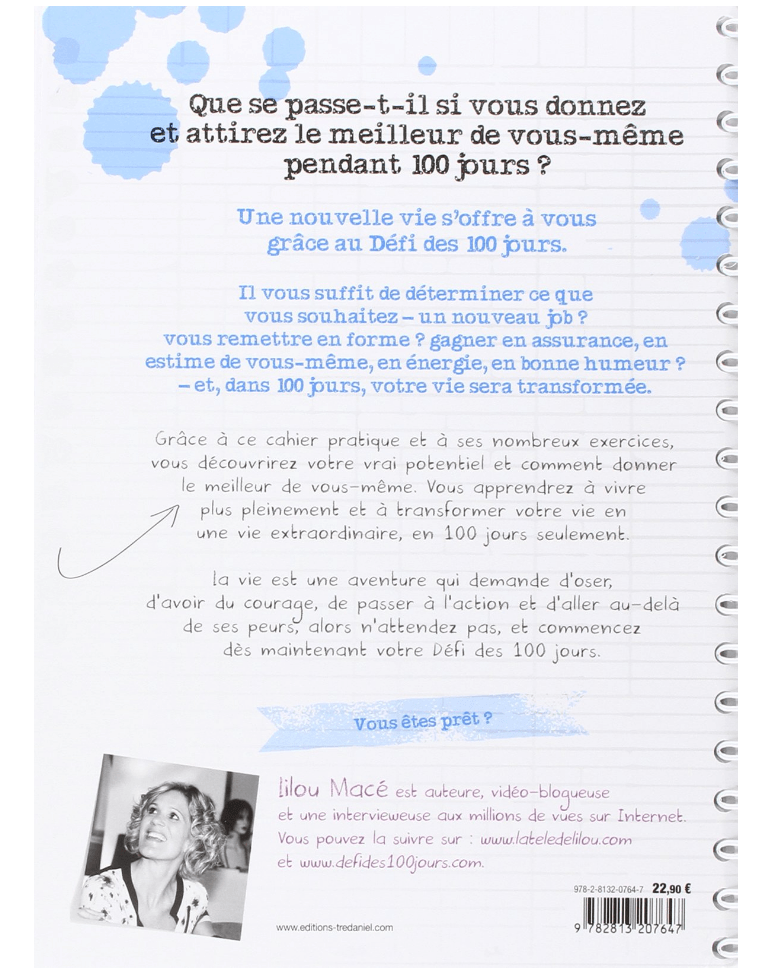 Que se passe-t-il si vous donnez
et attirez le meilleur de vous-même
pendant 100 jours ?
Une nouvelle vie s'offre à vous
grâce au Défi des 100 jours.
Il vous suffit de déterminer ce que
vous souhaitez – un nouveau job ?
vous remettre en forme ? gagner en assurance, en
estime de vous-même, en énergie, en bonne humeur ?
– et, dans 100 jours, votre vie sera transformée.
Grâce à ce cahier pratique et à ses nombreux exercices,
vous découvrirez votre vrai potentiel et comment donner
le meilleur de vous-même. Vous apprendrez à vivre
plus pleinement et à transformer votre vie en
une vie extraordinaire, en 100 jours seulement.
la vie est une aventure qui demande d'oser,
d'avoir du courage, de passer à l'action et d'aller au-delà
de ses peurs, alors n'attendez pas, et commencez
dès maintenant votre Défi des 100 jours.
Vous êtes prêt ?
lilou Macé est auteure, vidéo-blogueuse
et une intervieweuse aux millions de vues sur Internet.
Vous pouvez la suivre sur : www.lateledelilou.com
et www.defides100jours.com.
978-2-8132-0764-7 22,90 €
www.editions-tredaniel.com
9 782813 207647